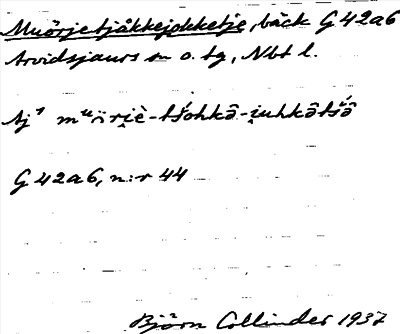 Muörjetjåkkejokketje, bäck G 42a6
Arvidsjaurs sn o. tg, Nbt l.
Aj¹ mᵘörị̀è-tśohkâ-i̯uhkâtśâ
G 42a6, n:r 44
Björn Collinder 1937